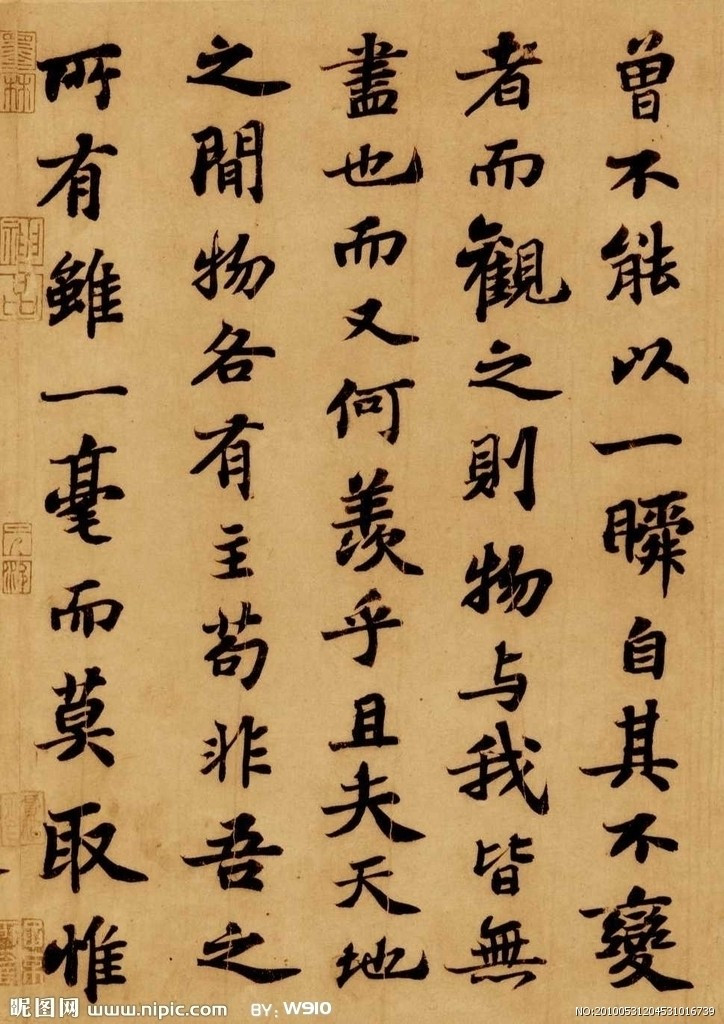 曾不能以一瞬自其不變
者而觀之則物与我皆無
盡也而又何羨乎且夫天地
之間物各有主苟非吾之
所有雖一毫而莫取惟
昵图网 www.nipic.com BY: W910
NO:20100531204531016739